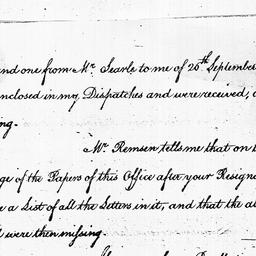 and one from Mr. Searle to me of 26th September
enclosed in my Dispatches and were received,
ng.
Mr. Remsen tells me that on
ge of the Papers of this Office after your Resigna
e a List of all the Letters in it, and that the
were then missing.